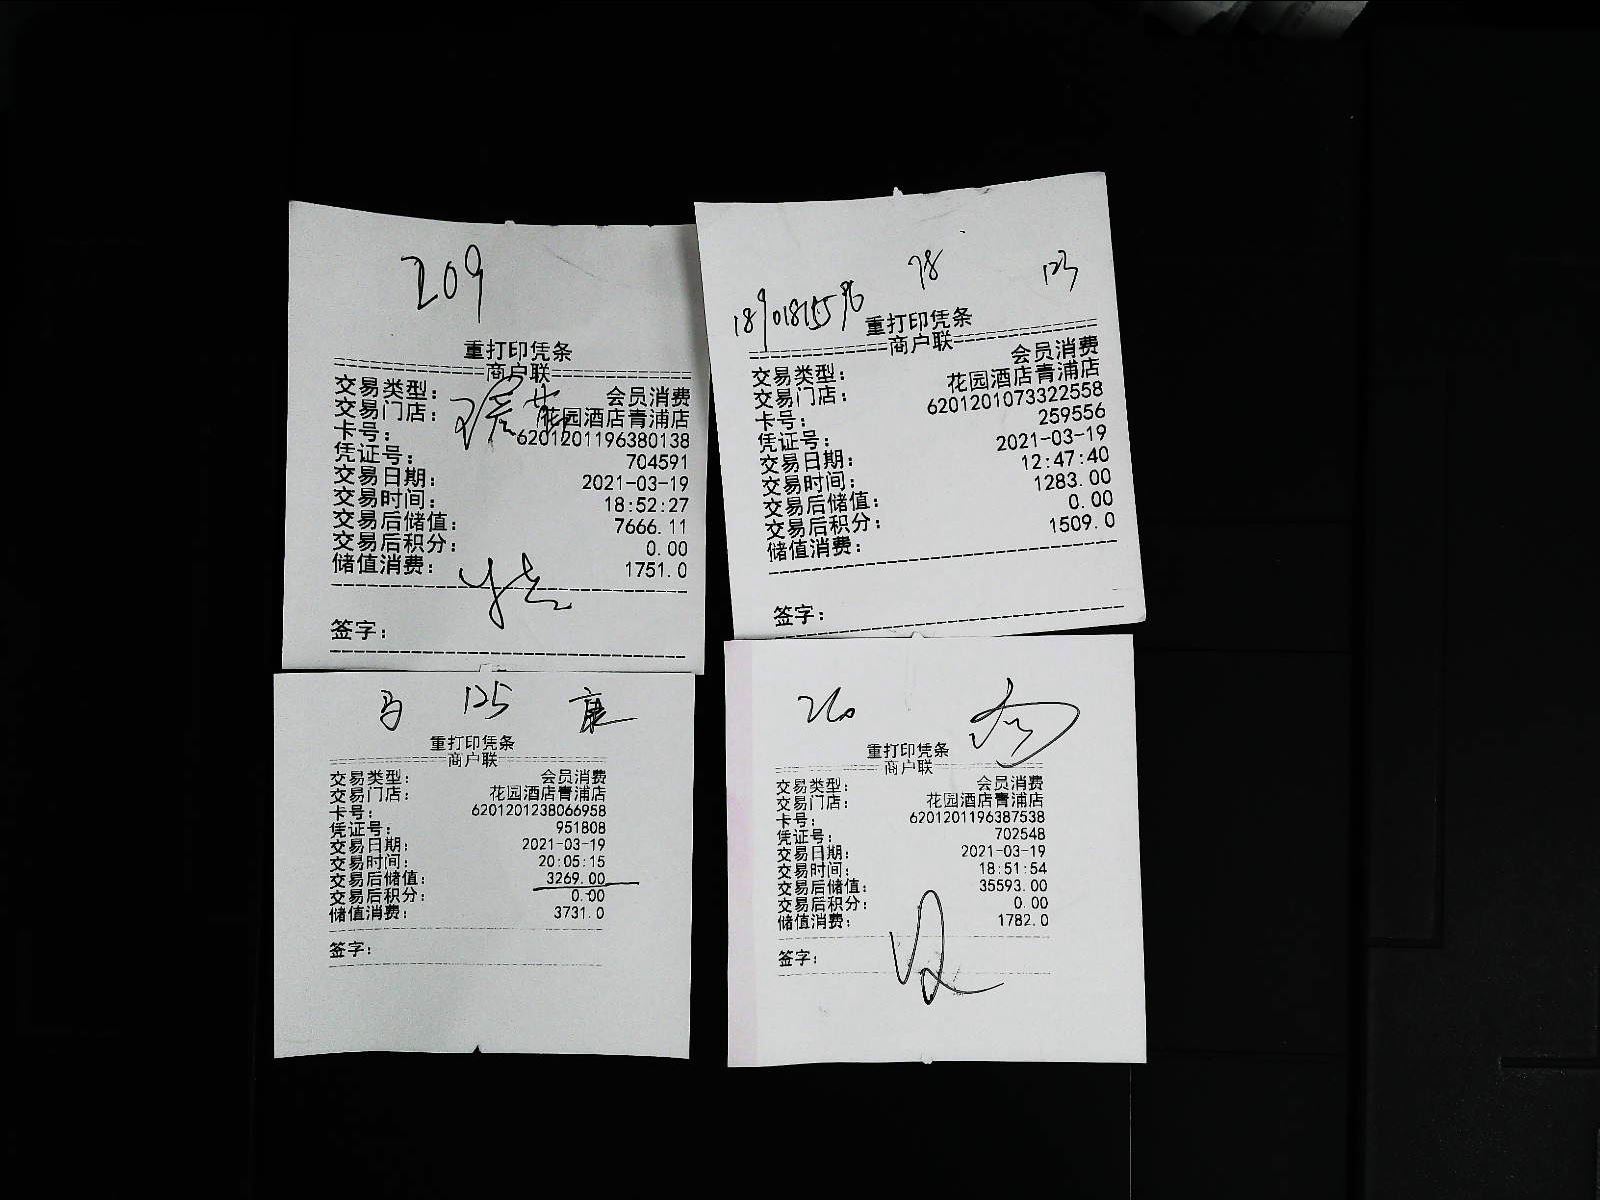 209
重打印凭条
商户联
交易类型： 会员消费
交易门店： 花园酒店青浦店
卡号： 6201201196380138
凭证号： 704591
交易日期： 2021-03-19
交易时间： 18:52:27
交易后储值： 7666.11
交易后积分： 0.00
储值消费： 1751.0
签字：
78 123
重打印凭条
商户联
交易类型： 会员消费
交易门店： 花园酒店青浦店
卡号： 6201201073322558
凭证号： 259556
交易日期： 2021-03-19
交易时间： 12:47:40
交易后储值： 1283.00
交易后积分： 0.00
储值消费： 1509.0
签字：
马 125 康
重打印凭条
商户联
交易类型： 会员消费
交易门店： 花园酒店青浦店
卡号： 6201201238066958
凭证号： 951808
交易日期： 2021-03-19
交易时间： 20:05:15
交易后储值： 3269.00
交易后积分： 0.00
储值消费： 3731.0
签字：
重打印凭条
商户联
交易类型： 会员消费
交易门店： 花园酒店青浦店
卡号： 6201201196387538
凭证号： 702548
交易日期： 2021-03-19
交易时间： 18:51:54
交易后储值： 35593.00
交易后积分： 0.00
储值消费： 1782.0
签字：